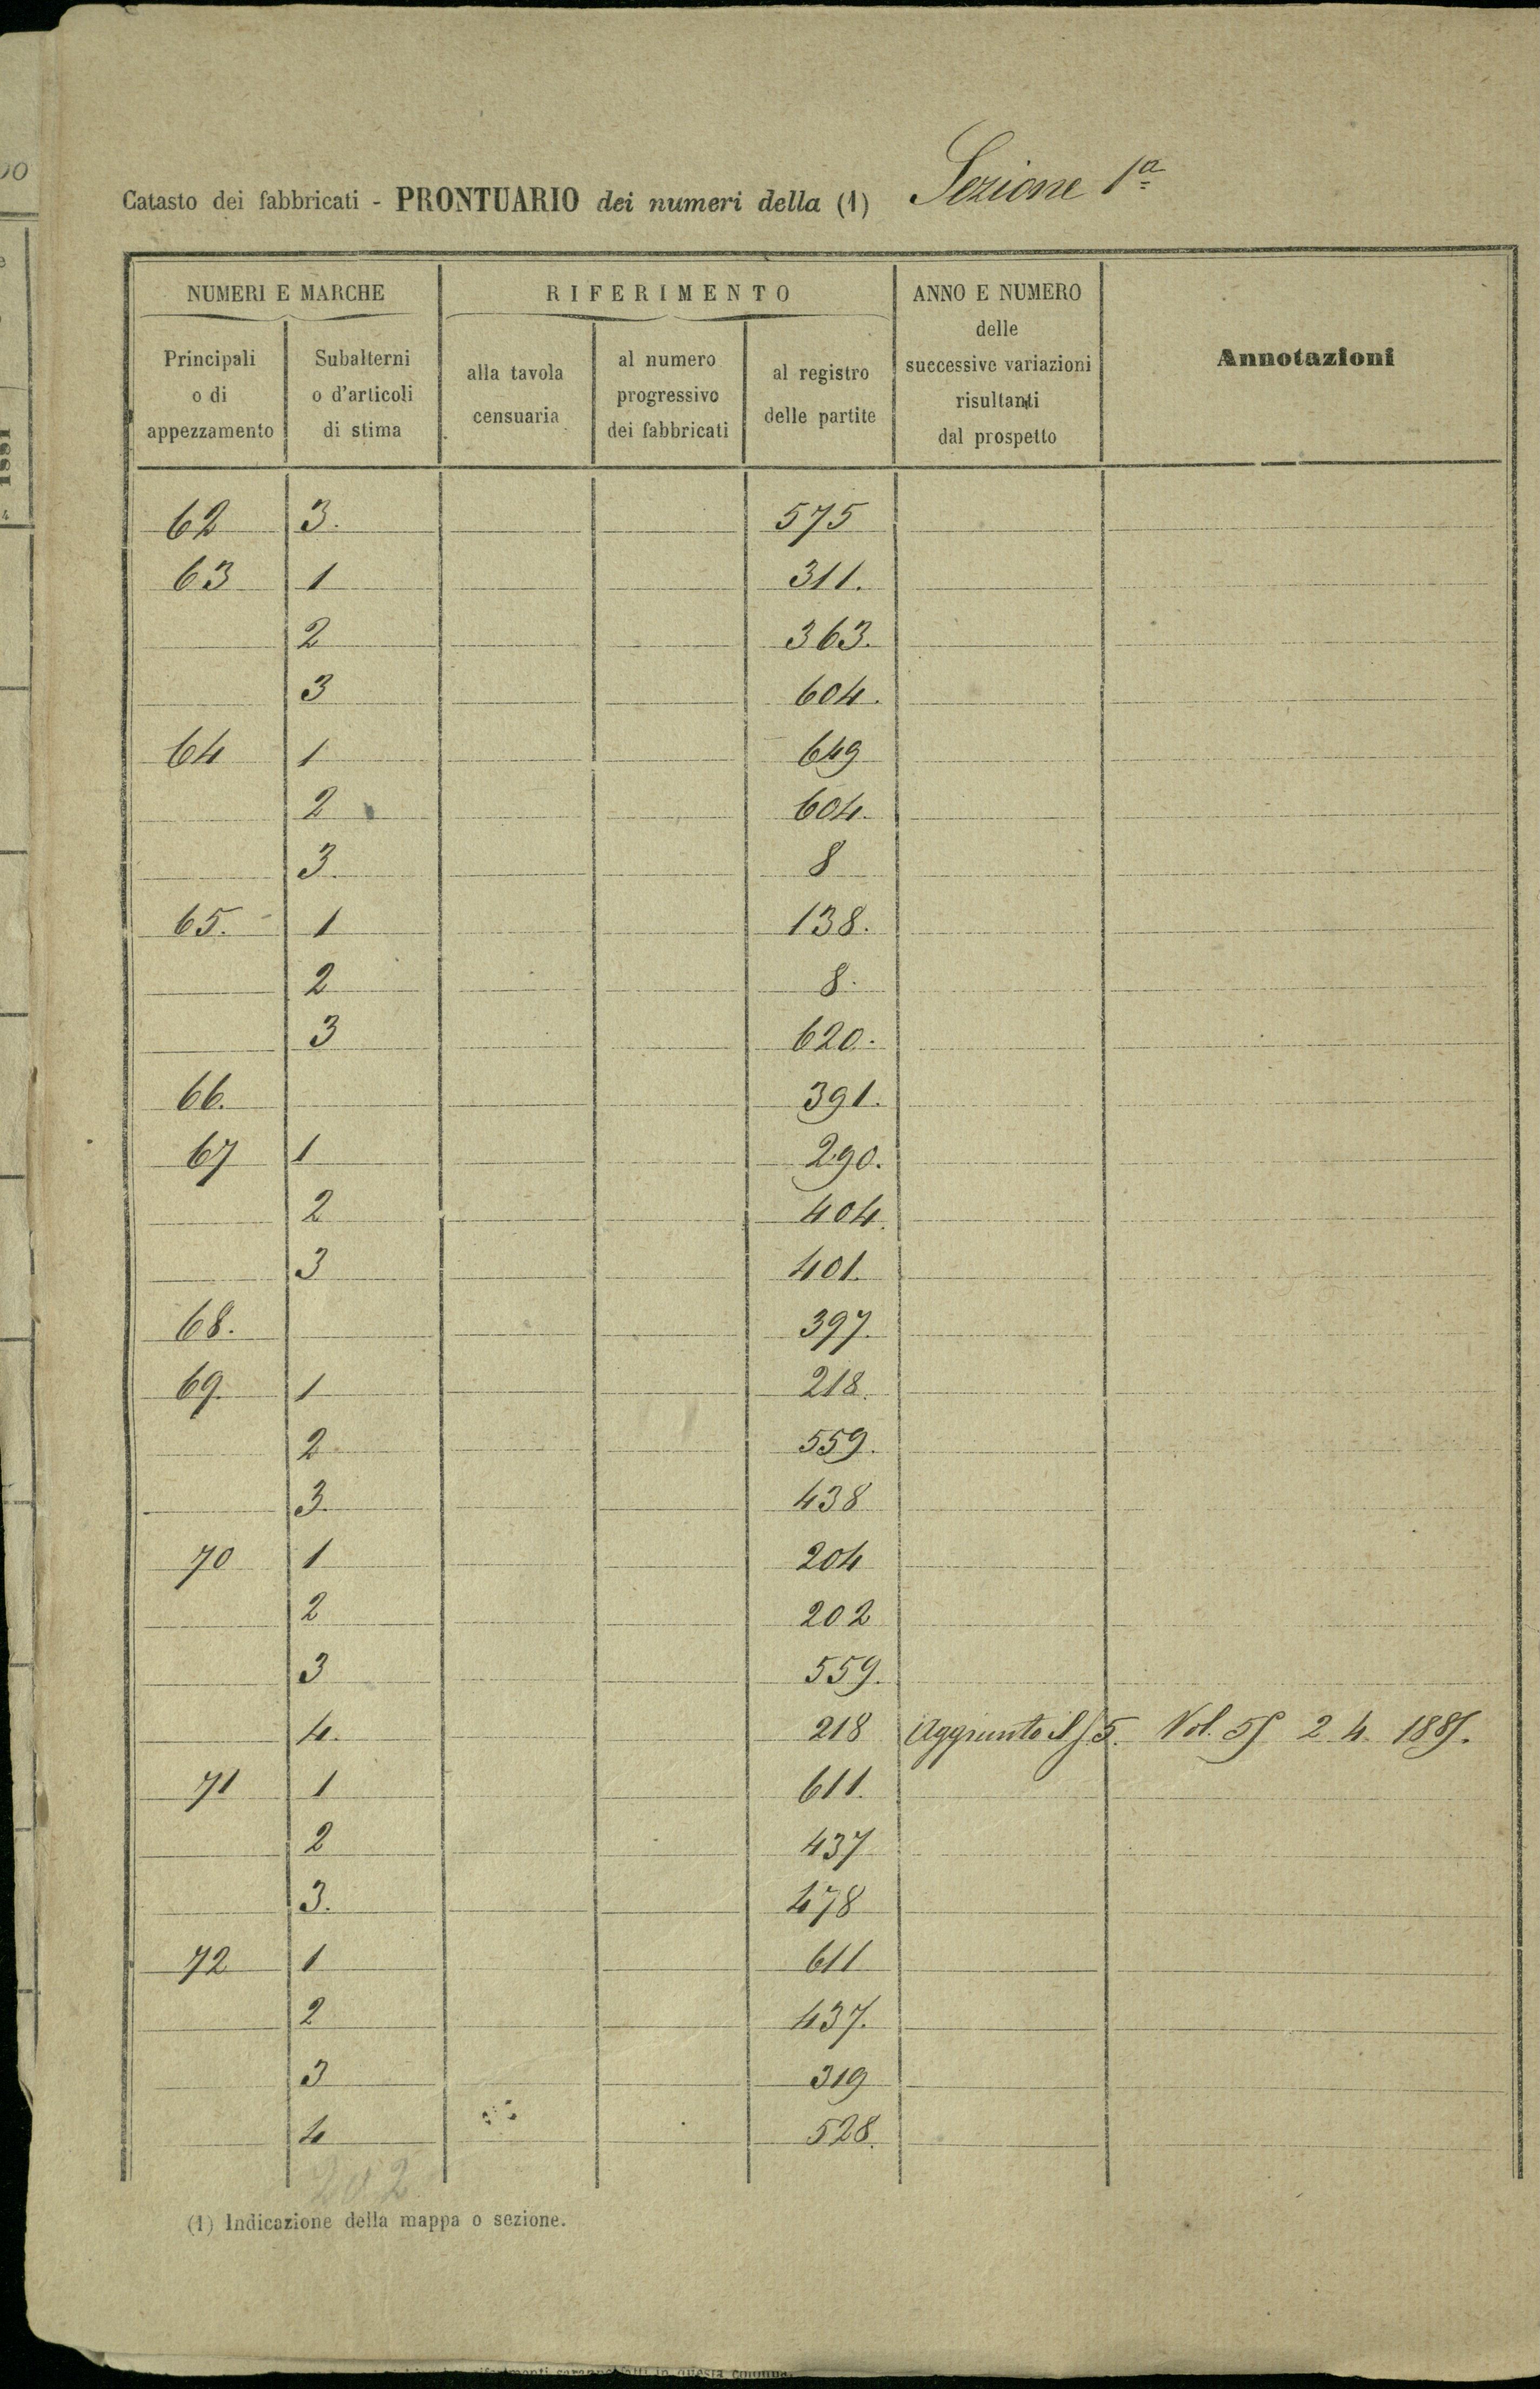 Catasto dei fabbricati - PRONTUARIO dei numeri della (1) Sezione 1ª
NUMERI E MARCHE
RIFERIMENTO
ANNO E NUMERO
delle
successive variazioni
risultanti
dal prospetto
Annotazioni
Principali
o di
appezzamento
Subalterni
o d'articoli
di stima
alla tavola
censuaria
al numero
progressivo
dei fabbricati
al registro
delle partite
62 3. 575
63 1 311.
2 363.
3 604.
64 1 649
2 604.
3. 8
65. 1 138.
2 8.
3 620.
66. 391.
67 1 290.
2 404.
3 401.
68. 397.
69. 1 218.
2 559.
3. 438
70 1 204
2 202
3 559.
4. 218 Aggiunto 5. Vol. 2 4
71 1 611.
2 437
3. 478
72 1 611
2 437.
3 319
4 528.
202
(1) Indicazione della mappa o sezione.